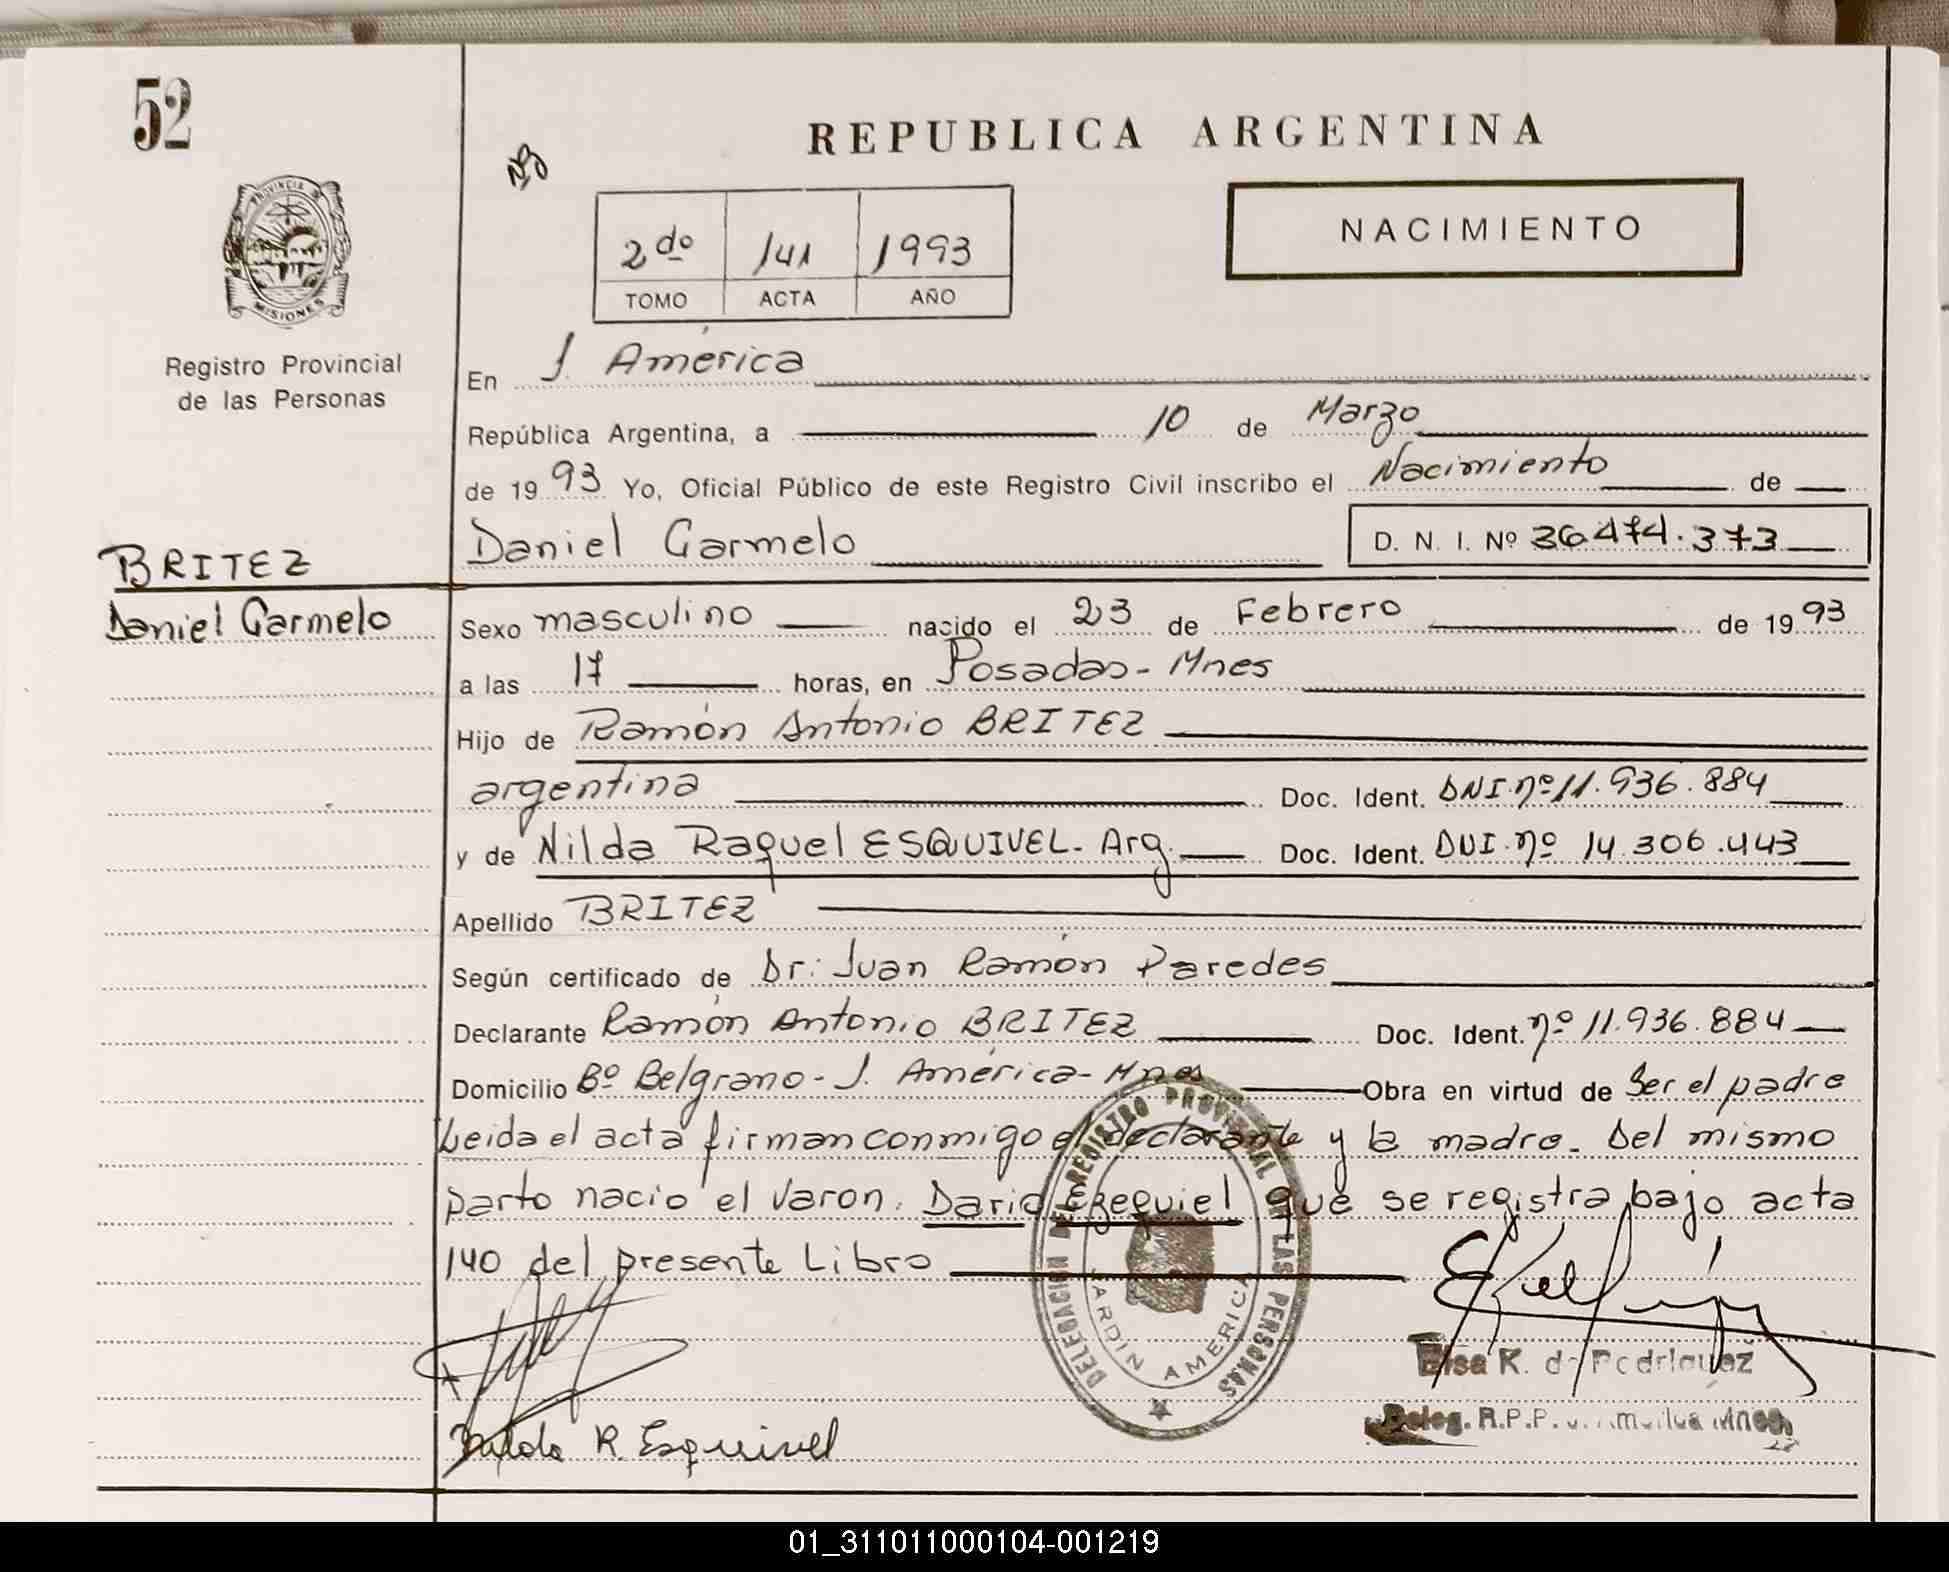 52
REPUBLICA ARGENTINA
NACIMIENTO
2do 141 1993
TOMO ACTA AÑO
PROVINCIA D
MISIONES
Registro Provincial
de las Personas
En J. América
República Argentina, a 10 de Marzo
de 1993 Yo, Oficial Público de este Registro Civil inscribo el Nacimiento de
Daniel Carmelo D. N. I. Nº 36.474.373
BRITEZ
Daniel Carmelo
Sexo masculino nacido el 23 de Febrero de 1993
a las 17 horas, en Posadas - Mnes
Hijo de Ramón Antonio BRITEZ
argentina Doc. Ident. DNI. nº 11.936.884
y de Nilda Raquel ESQUIVEL - Arg. Doc. Ident. DNI. nº 14.306.443
Apellido BRITEZ
Según certificado de Dr: Juan Ramón Paredes
Declarante Ramón Antonio BRITEZ Doc. Ident. nº 11.936.884
Domicilio Bº Belgrano - J. América - Mnes Obra en virtud de Ser el padre
Leida el acta firman conmigo el declarante y la madre - Del mismo
parto nacio el varon. Dario Ezequiel que se registra bajo acta
140 del presente Libro
DELEGACION DEL REGISTRO PROVINCIAL DE LAS PERSONAS
JARDIN AMERICA
Elsa K. de Rodriguez
Deleg. R.P.P. Mnes.
Nilda R. Esquivel
01_311011000104-001219